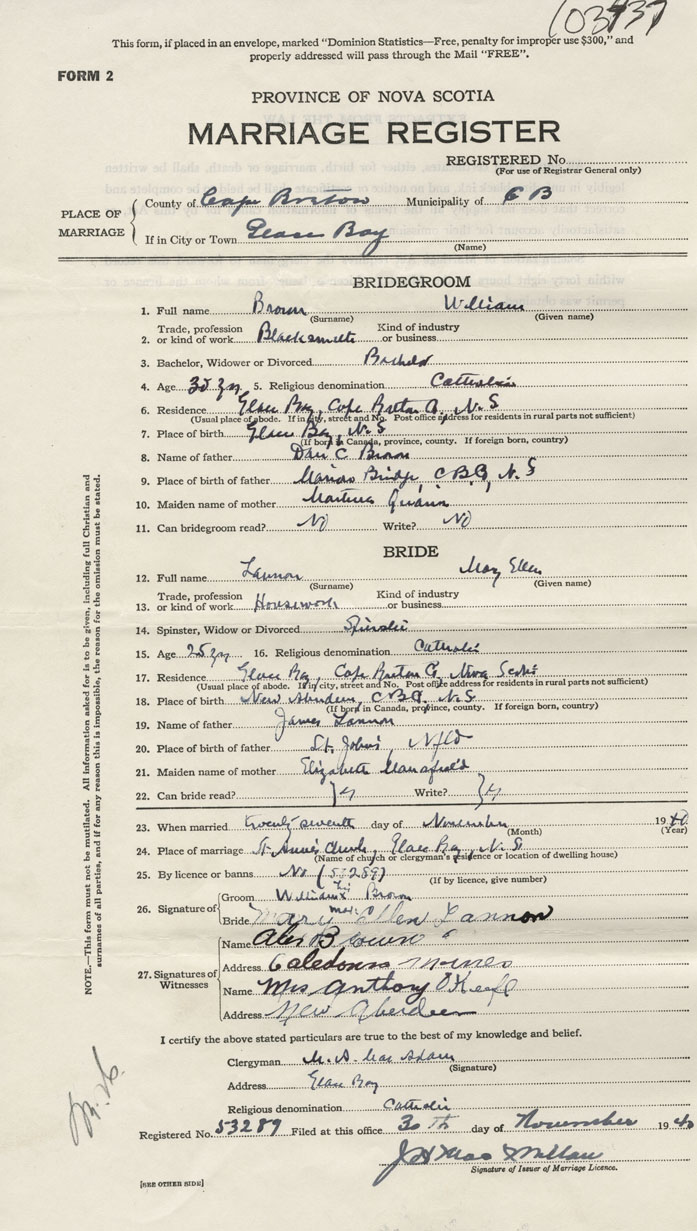 103437
This form, if placed in an envelope, marked “Dominion Statistics—Free, penalty for improper use $300,” and
properly addressed will pass through the Mail “FREE”.
FORM 2
PROVINCE OF NOVA SCOTIA
MARRIAGE REGISTER
REGISTERED No.
(For use of Registrar General only)
PLACE OF MARRIAGE
County of Cape Breton Municipality of C B
If in City or Town Glace Bay
(Name)
BRIDEGROOM
1. Full name Brown William
(Surname) (Given name)
2. Trade, profession or kind of work Blacksmith Kind of industry or business
3. Bachelor, Widower or Divorced Bachelor
4. Age yrs 5. Religious denomination Catholic
6. Residence Glace Bay, Cape Breton Co, N.S
(Usual place of abode. If in city, street and No. Post office address for residents in rural parts not sufficient)
7. Place of birth Glace Bay, N.S
(If born in Canada, province, county. If foreign born, country)
8. Name of father Dan C Brown
9. Place of birth of father Marion Bridge, C B Co, N.S
10. Maiden name of mother
11. Can bridegroom read? No Write? No
BRIDE
12. Full name Lannon Mary Ellen
(Surname) (Given name)
13. Trade, profession or kind of work Housework Kind of industry or business
14. Spinster, Widow or Divorced Spinster
15. Age 25 yrs 16. Religious denomination Catholic
17. Residence Glace Bay, Cape Breton Co, Nova Scotia
(Usual place of abode. If in city, street and No. Post office address for residents in rural parts not sufficient)
18. Place of birth New Aberdeen, C B Co, N.S
(If born in Canada, province, county. If foreign born, country)
19. Name of father James Lannon
20. Place of birth of father St. John's, Nfld
21. Maiden name of mother Elizabeth Mansfield
22. Can bride read? Y Write? Y
23. When married twenty seventh day of November 1940
(Month) (Year)
24. Place of marriage St Anne's Church, Glace Bay, N.S
(Name of church or clergyman's residence or location of dwelling house)
25. By licence or banns No (53289)
(If by licence, give number)
26. Signature of
Groom William X Brown
Bride Mary Ellen Lannon
27. Signatures of Witnesses
Name Alex Brown
Address Caledonia Mines
Name Mrs Anthony O'Keefe
Address New Aberdeen
I certify the above stated particulars are true to the best of my knowledge and belief.
Clergyman M. A. MacAdam
(Signature)
Address Glace Bay
Religious denomination Catholic
Registered No. 53289 Filed at this office 30th day of November 1940
J H MacMillan
Signature of Issuer of Marriage Licence.
[SEE OTHER SIDE]
NOTE.—This form must not be mutilated. All information asked for is to be given, including full Christian and
surnames of all parties, and if for any reason this is impossible, the reason for the omission must be stated.